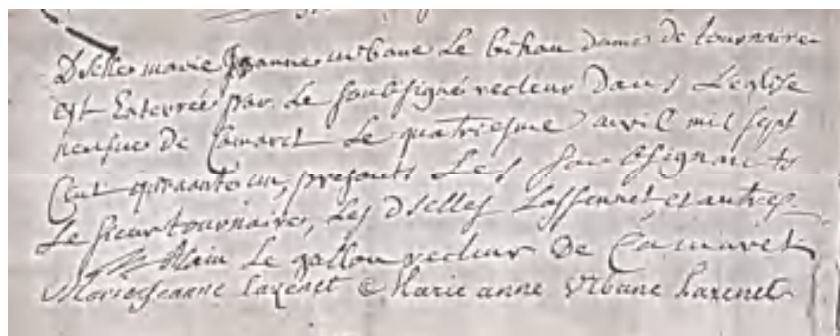 Dselle marie Jeanne urbane Le bihan dame de tournaire
est Enterrée par Le soubsigné recteur dans L'eglise
neufue de Camaret Le quatriesme avril mil sept
Cent quarante un, presents Les soubsignants
Le sieur tournaire, Les Dselles Lassennet et autres
Alain Le gallou recteur De Camaret
Marie Jeanne Laxenet Marie anne Urbane Laxenet